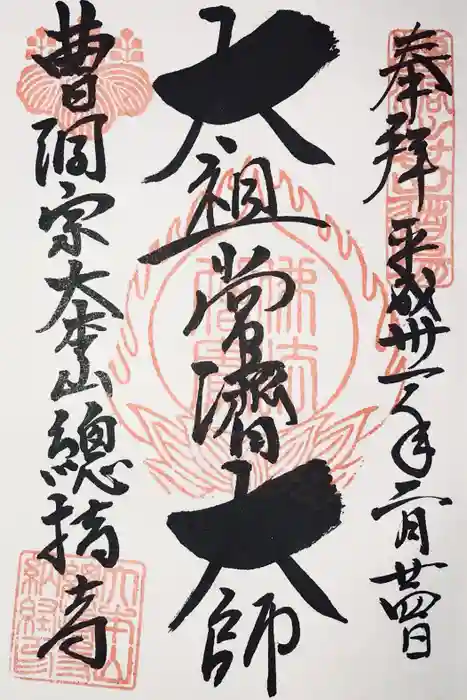 奉拝 平成卅一年二月廿四日
太祖常濟大師
曹洞宗大本山總持寺